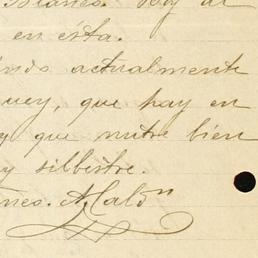 Blanes. Voy al
en ésta.
actualmente
uey, que hay en
y que nutre bien
y silbestre.
nes. A. Cald^n